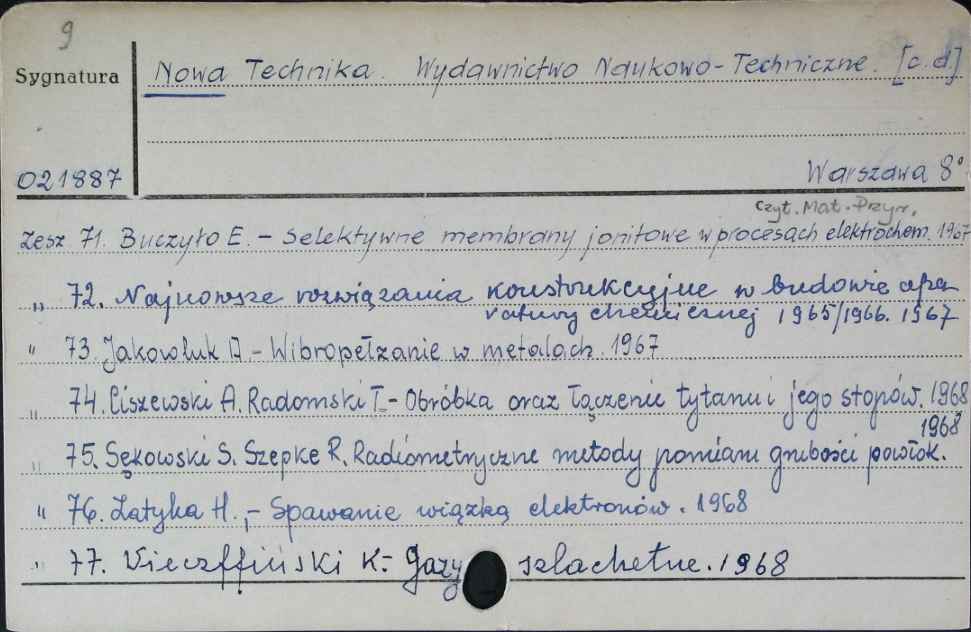 9
Sygnatura
Nowa Technika. Wydawnictwo Naukowo-Techniczne. [c.d]
021887
Warszawa 8°
Czyt. Mat. Przyr.
Zesz 71. Buczyło E. - Selektywne membrany jonitowe w procesach elektrochem. 1967
„ 72. Najnowsze rozwiązania konstrukcyjne w budowie apa-
ratury chemicznej 1965/1966. 1967
" 73. Jakowluk A - Wibropełzanie w metalach. 1967
„ 74. Ciszewski A. Radomski T. - Obróbka oraz łączenie tytanu i jego stopów. 1968
1968
„ 75. Sękowski S. Szepke R. Radiometryczne metody pomiaru grubości powłok.
" 76. Łatyka H., - Spawanie wiązką elektronów. 1968
„ 77. K. - Gazy szlachetne. 1968